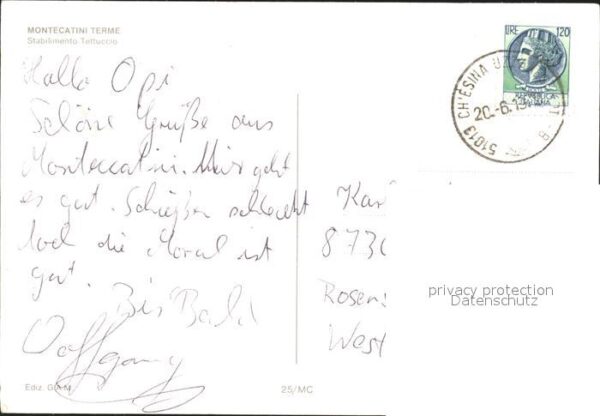 MONTECATINI TERME
Stabilimento Tettuccio
Hallo Opi
Schöne Grüße aus
Montecatini. Mir geht
es gut. Schießen schlecht
doch die Moral ist
gut.
Bis Bald
Wolfgang
Ediz.
25/MC
LIRE 120
51013 CHIESINA
20.-6.
8730
Rosen
West
privacy protection
Datenschutz